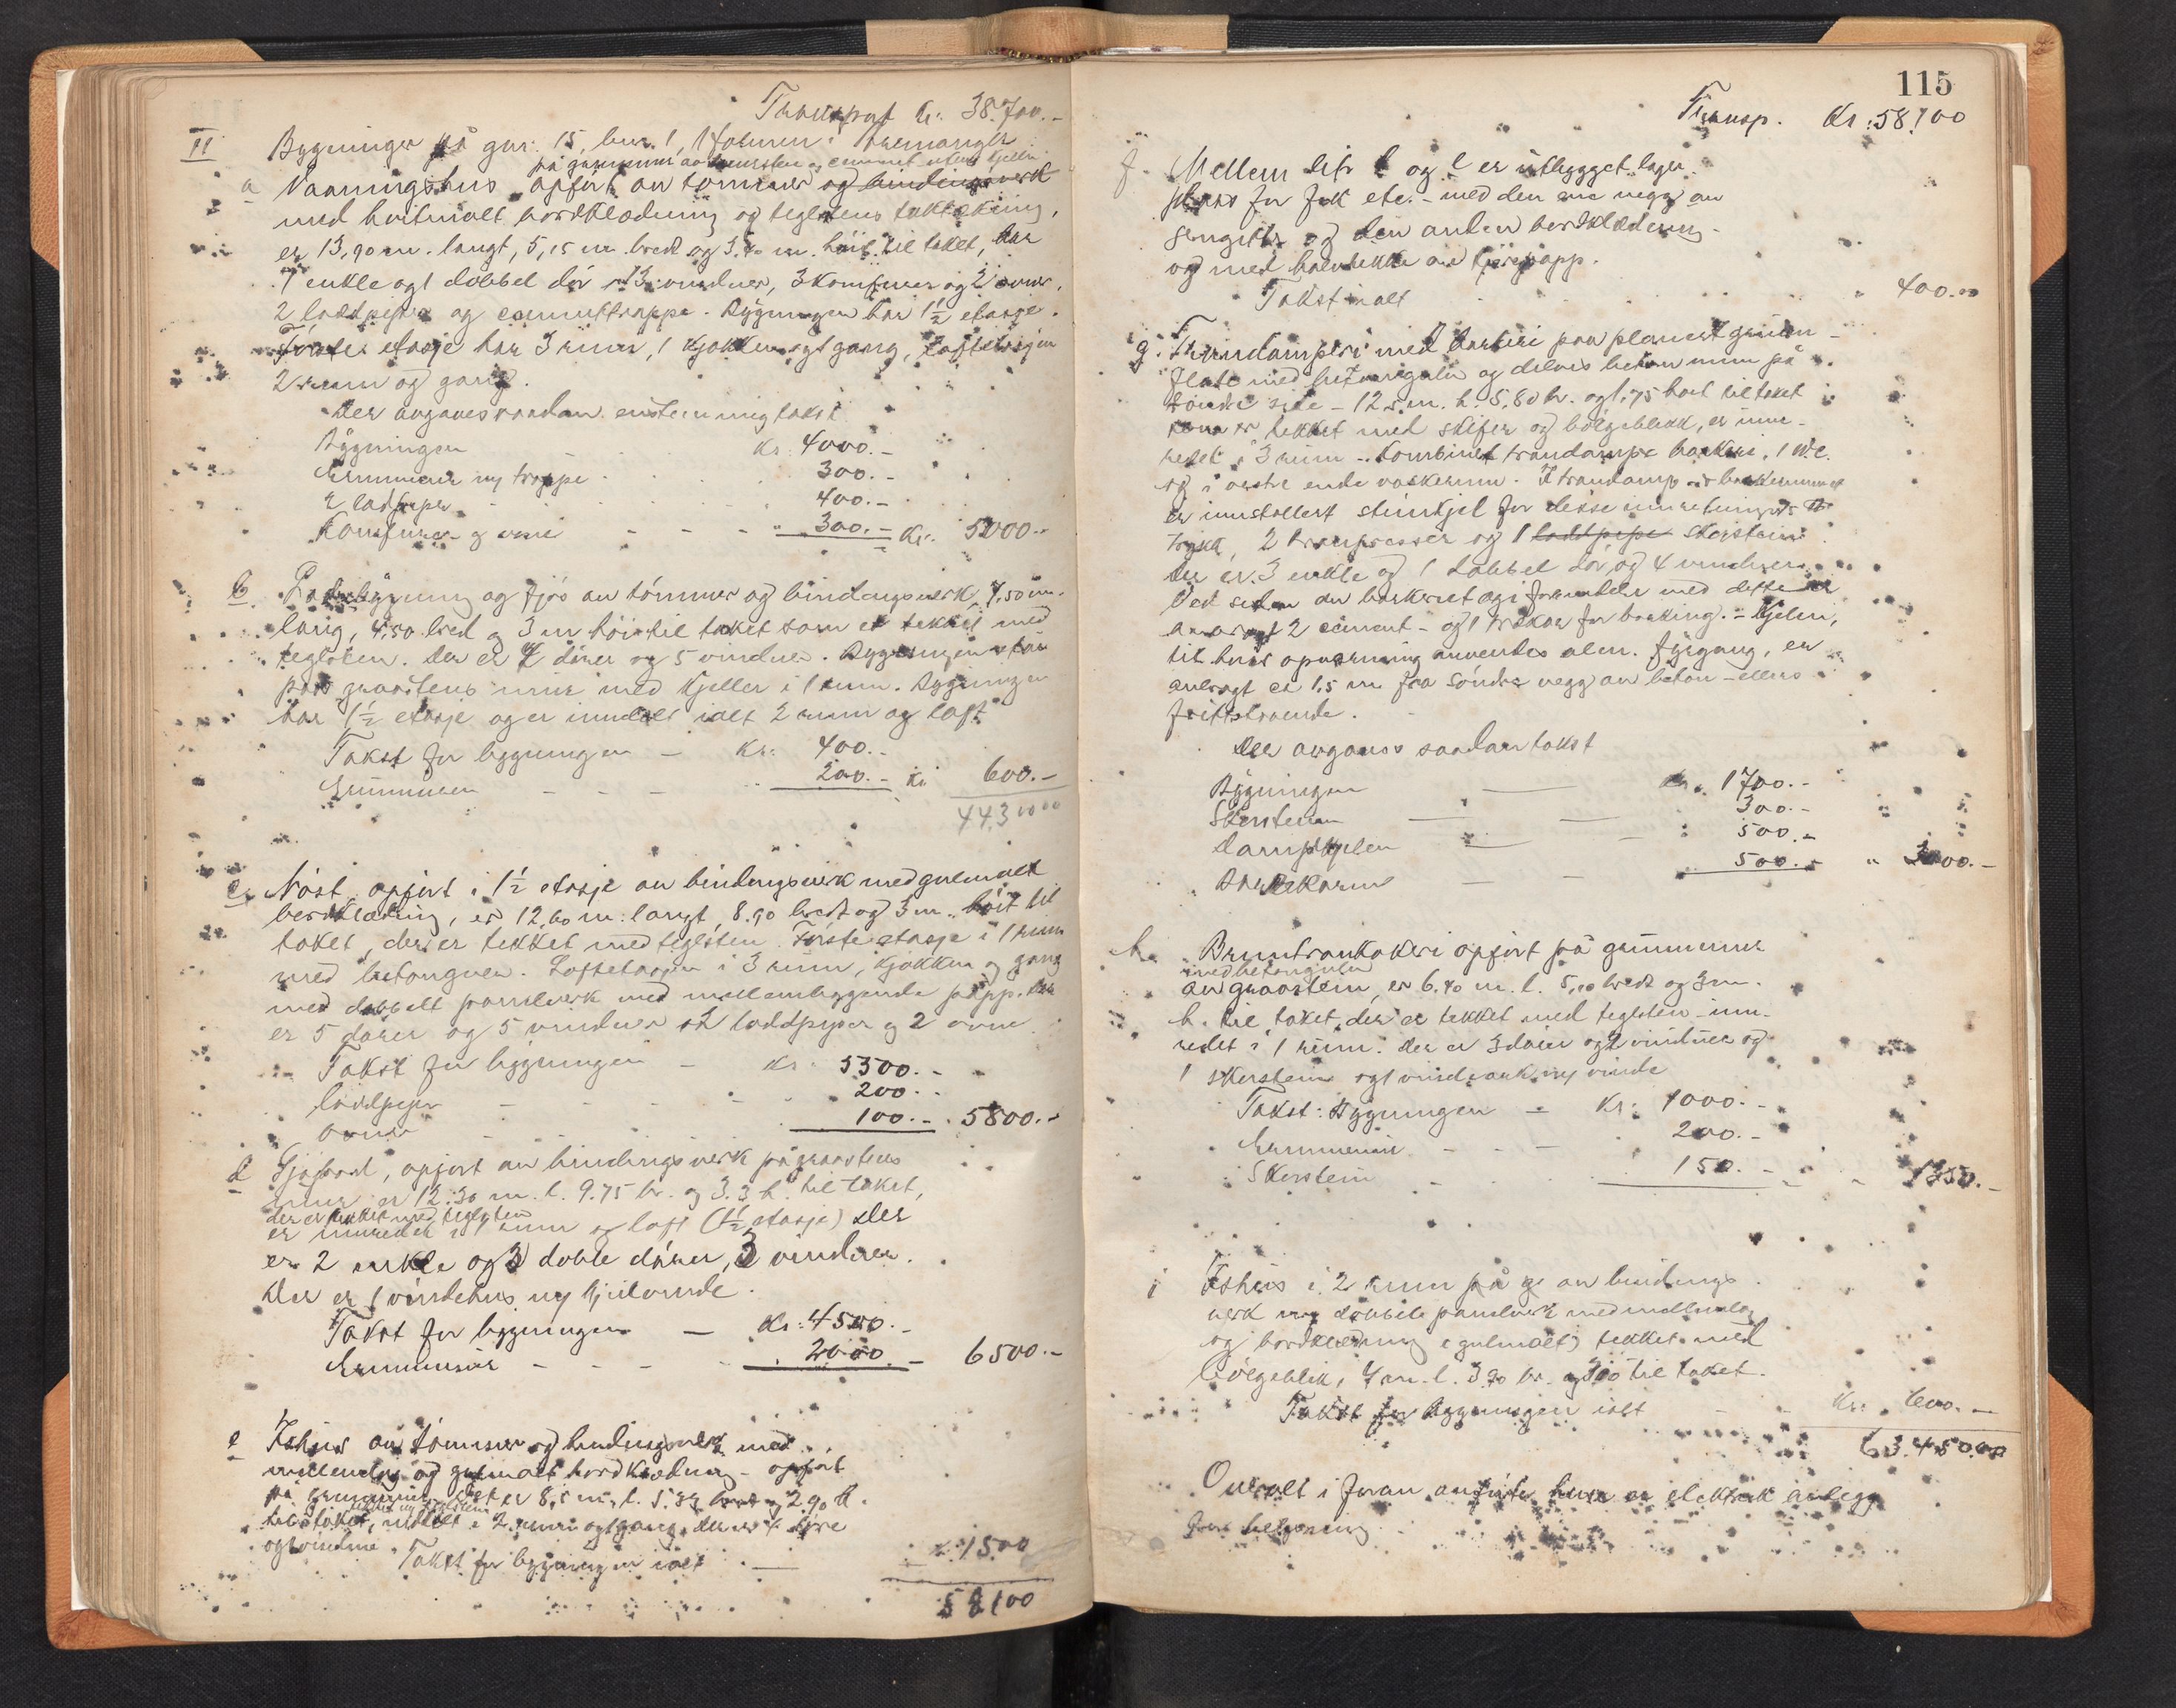 Transport kr. 38.700.-
II Bygninger på gnr. 15, bnr. 1, i Bremanger
på grunnmur av graasten og cement uten kjeller
a Vaaningshus opført av tømmer og bindingsverk
med hvitmalt bordklædning og teglstens taktekking,
er 13,90 m. langt, 5,15 m. bredt og 3.40 m. høit til taket, har
1 enkle og 1 dobbel dør, 13 vinduer, 3 komfurer og 2 ovner,
2 loddpiper og cementtrappe. Bygningen har 1½ etasje.
Første etasje har 3 rum, 1 kjøkken og 1 gang, loftetasjen
2 rum og gang.
Der avgaves saadan enstemmig takst
Bygningen Kr. 4000.-
Grunnmur og trappe 300.-
2 loddpiper 400.-
Komfurer og ovne " 300.- Kr. 5000.-
b. bygning og fjøs av tømmer og bindingsverk, 7,50 m.
lang, 4,50 bred og 3 m høi til taket som er tekket med
teglsten. Der er 4 dører og 5 vinduer. Bygningen staar
paa graastens mur med kjeller i 1 rum. Bygningen
har 1½ etasje og er inndelt ialt 2 rum og loft
Takst for bygningen - Kr. 400.-
Grunnmuren - - - " 200.- Kr 600.-
44.300 00
c. Nøst, opført i 1½ etasje av bindingsverk med gulmalt
bordklædning, er 12,60 m. langt, 8.90 bredt og 3 m. høit til
taket, der er tekket med teglsten. Første etasje i 1 rum
med betongulv. Loftetasjen i 3 rum, kjøkken og gang
med dobbelt panelverk med mellemliggende papp. Der
er 5 dører og 5 vinduer 2 loddpiper og 2 ovne.
Takst for bygningen - Kr. 5500.-
loddpiper - - - 200.-
ovner - 100.- . 5800.-
d Sjøbod, opført av bindingsverk på graastens
mur er 12.30 m. l. 9.75 br. og 3.3 h. til taket,
der er tekket med teglsten
er innredet i 1 rum og loft (1½ etasje) Der
er 2 enkle og 3 doble dører, 3 vinduer.
Der er 1 vindehus og hjulvinde.
Takst for bygningen - Kr: 4500.-
Grunnmur - - - - 2000.- 6500.-
e Ishus av tømmer og bindingsverk med
mellemlag og gulmalt bordklædning - opført
på grunnmur, er 8,5 m. l. 5.33 bredt og 2.90 h.
tekket med teglsten
til taket, inddelt i 2 rum og 1 gang. Der er 4 døre
og vindue. Takst for bygningen ialt - 1500
58100
115
Transp. Kr: 58100
f. Mellem litr b og e er utbygget lager
plass for fisk etc. - med den ene vegg av
og den anden bordklædning
og med av tjærepapp.
Takst ialt " 400.00
g. Trandamperi med barkeri paa planert grunn
flate med betongulv og delvis beton mur på
søndre side - 12,5 m. l. 5,80 br. og 1.75 høit til taket
som er tekket med skifer og bølgeblikk, er inn-
redet i 3 rum - Kombinert trandampe barkeri, 1 W.C.
og i vestre ende vaskerum. I trandamp og barkerummet
er innstallert stimkjel for disse innretninger
trykk, 2 tranpresser og 1 loddpipe skorstein.
Der er 3 enkle og 1 dobbel dør, og 4 vinduer.
Ved siden av barkeriet og i forbindelse med dette er
anbragt 2 cement- og 1 trekar for barking. - Kjelen,
til hvis opvarming anvendes alm. fyrgang, er
anbragt ca 1,5 m fra søndre vegg av beton - ellers
frittstaaende.
Der avgaves saadan takst
Bygningen Kr. 1700.-
Skorstenen 300.-
Dampkjelen 500.-
Barkekarene 500.- " 3000.-
h. Bruntrankokeri opført på grunnmur
med betongulv
av graasten, er 6.40 m. l. 5,10 bredt og 3 m.
h. til taket, der er tekket med teglsten - inn-
redet i 1 rum. Der er 3 dører og 2 vinduer og
1 skorstein og 1 vindebuk og vinde
Takst: Bygningen - Kr: 1000.-
Grunnmur - - - 200.-
Skorstein 150.- " 1350.-
i Ishus i 2 rum på gr av bindings
verk med dobbelt panelverk med mellemlag
og bordklædning (gulmalt) tekket med
bølgeblik, 4 m. l. 3.90 br. og 3.00 til taket.
Takst for bygningen ialt Kr: 600.-
63.450.00
Overalt i foran anførte huse er elektrisk anlegg
for belysning.